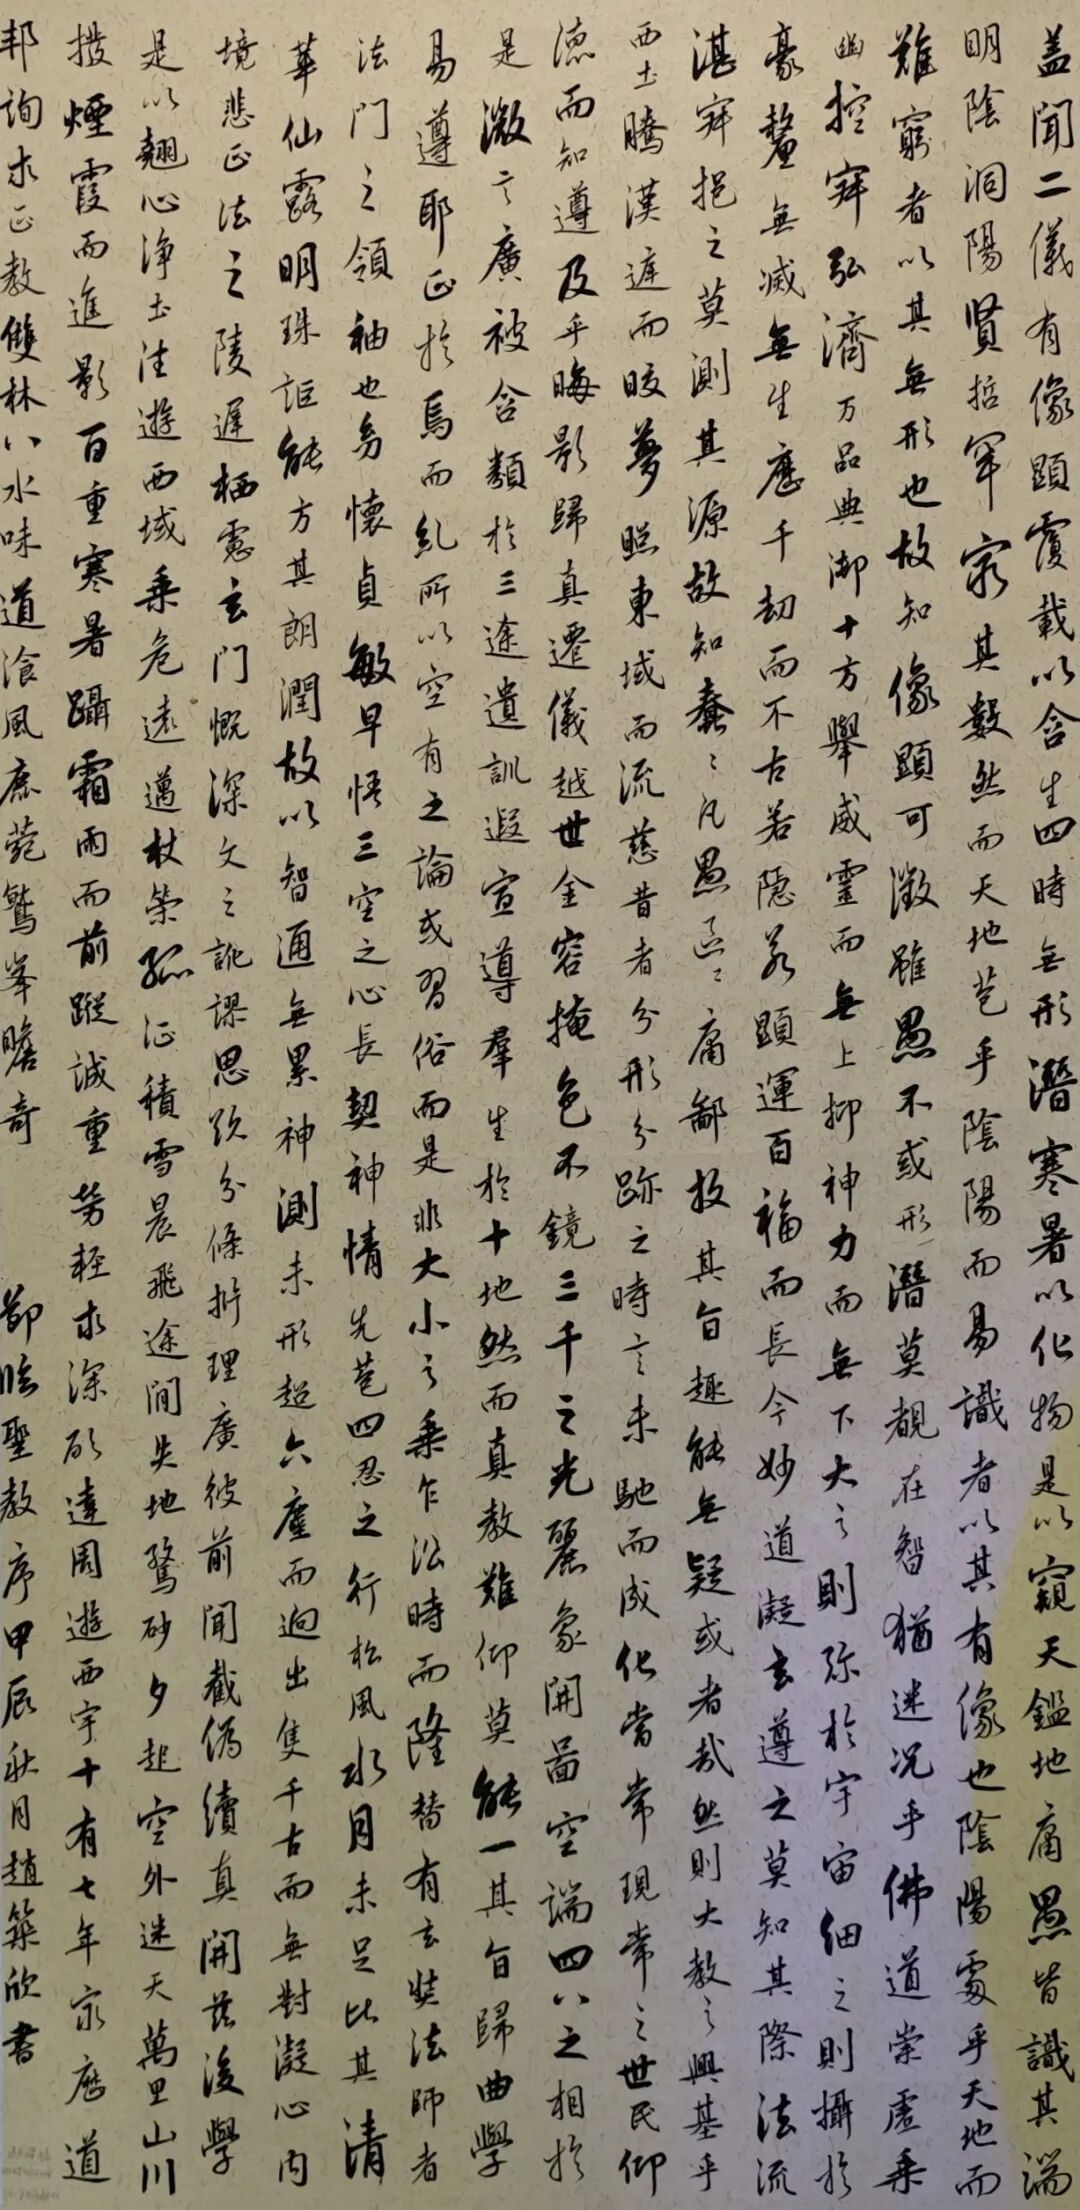 盖聞二儀有像顯覆載以含生四時無形潛寒暑以化物是以窺天鑑地庸愚皆識其端
明陰洞陽賢哲罕窮其數然而天地苞乎陰陽而易識者以其有像也陰陽處乎天地而
難窮者以其無形也故知像顯可徵雖愚不或形潛莫覩在智猶迷况乎佛道崇虛乘
幽控寂弘濟万品典御十方舉威靈而無上抑神力而無下大之則弥於宇宙細之則攝於
豪釐無滅無生歷千劫而不古若隱若顯運百福而長今妙道凝玄遵之莫知其際法流
湛寂挹之莫測其源故知蠢〻凡愚區〻庸鄙投其旨趣能無疑或者哉然則大教之興基乎
西土騰漢庭而皎夢照東域而流慈昔者分形分跡之時言未馳而成化當常現常之世民仰
德而知遵及乎晦影歸真遷儀越世金容掩色不鏡三千之光麗象開圖空端四八之相於
是微言廣被含類於三途遺訓遐宣導羣生於十地然而真教難仰莫能一其旨歸曲學
易遵耶正於焉而紛糺所以空有之論或習俗而是非大小之乘乍沿時而隆替有玄奘法師者
法門之領袖也幼懷貞敏早悟三空之心長契神情先苞四忍之行松風水月未足比其清
華仙露明珠詎能方其朗潤故以智通無累神測未形超六塵而迥出隻千古而無對凝心内
境悲正法之陵遲栖慮玄門慨深文之訛謬思欲分條析理廣彼前聞截偽續真開茲後學
是以翹心淨土法遊西域乘危遠邁杖策孤征積雪晨飛途間失地驚砂夕起空外迷天萬里山川
撥煙霞而進影百重寒暑躡霜雨而前蹤誠重勞輕求深欲達周遊西宇十有七年窮歷道
邦詢求正教雙林八水味道飡風鹿菀鷲峯瞻奇 節臨聖教序甲辰秋月趙築欣書